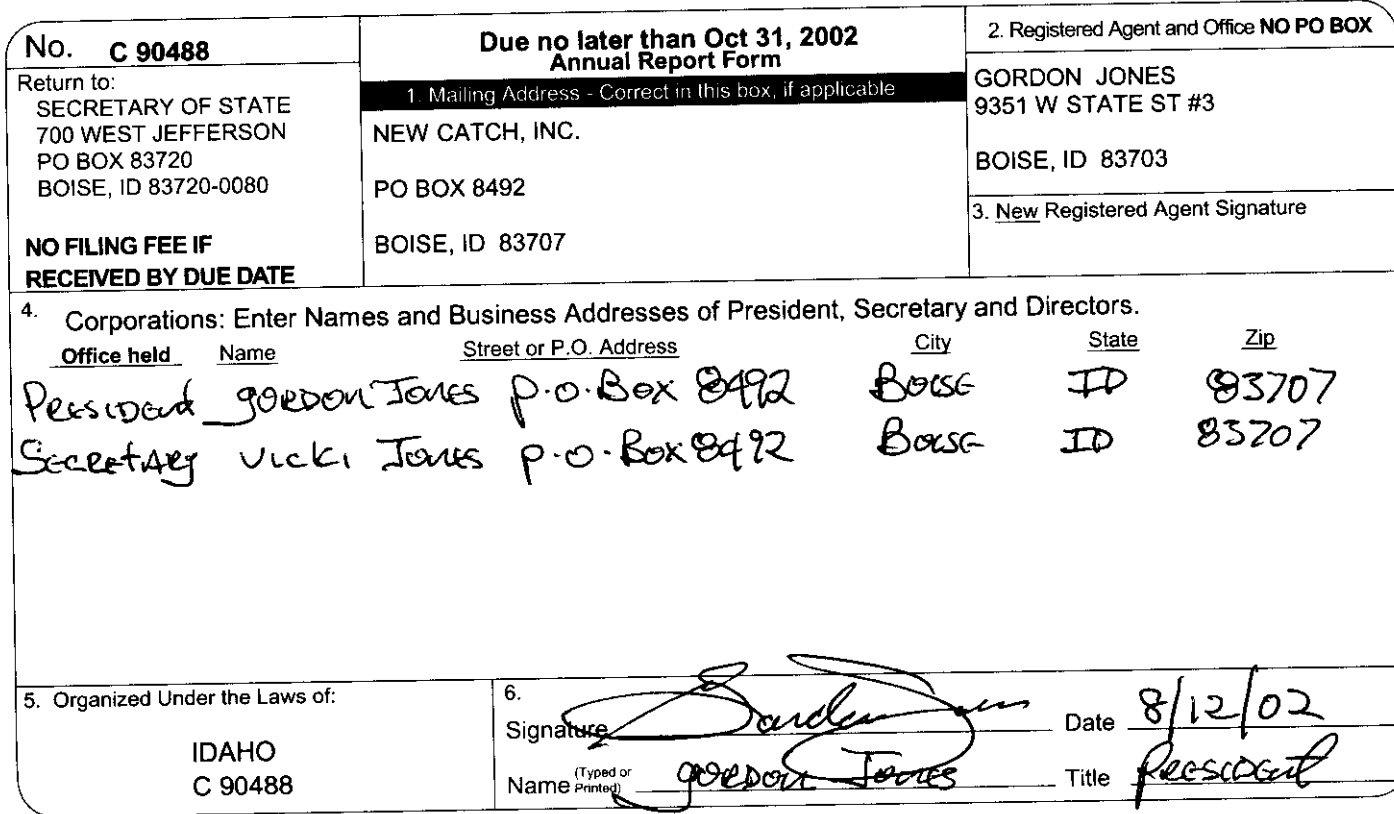 No. C 90488
Return to:
SECRETARY OF STATE
700 WEST JEFFERSON
PO BOX 83720
BOISE, ID 83720-0080
NO FILING FEE IF
RECEIVED BY DUE DATE
Due no later than Oct 31, 2002
Annual Report Form
1. Mailing Address - Correct in this box, if applicable
NEW CATCH, INC.
PO BOX 8492
BOISE, ID 83707
2. Registered Agent and Office NO PO BOX
GORDON JONES
9351 W STATE ST #3
BOISE, ID 83703
3. New Registered Agent Signature
4. Corporations: Enter Names and Business Addresses of President, Secretary and Directors.
Office held Name Street or P.O. Address City State Zip
President Gordon Jones P.O. Box 8492 Boise ID 83707
Secretary Vicki Jones P.O. Box 8492 Boise ID 83707
5. Organized Under the Laws of:
IDAHO
C 90488
6.
Signature Gordon Jones Date 8/12/02
Name (Typed or Printed) Gordon Jones Title President